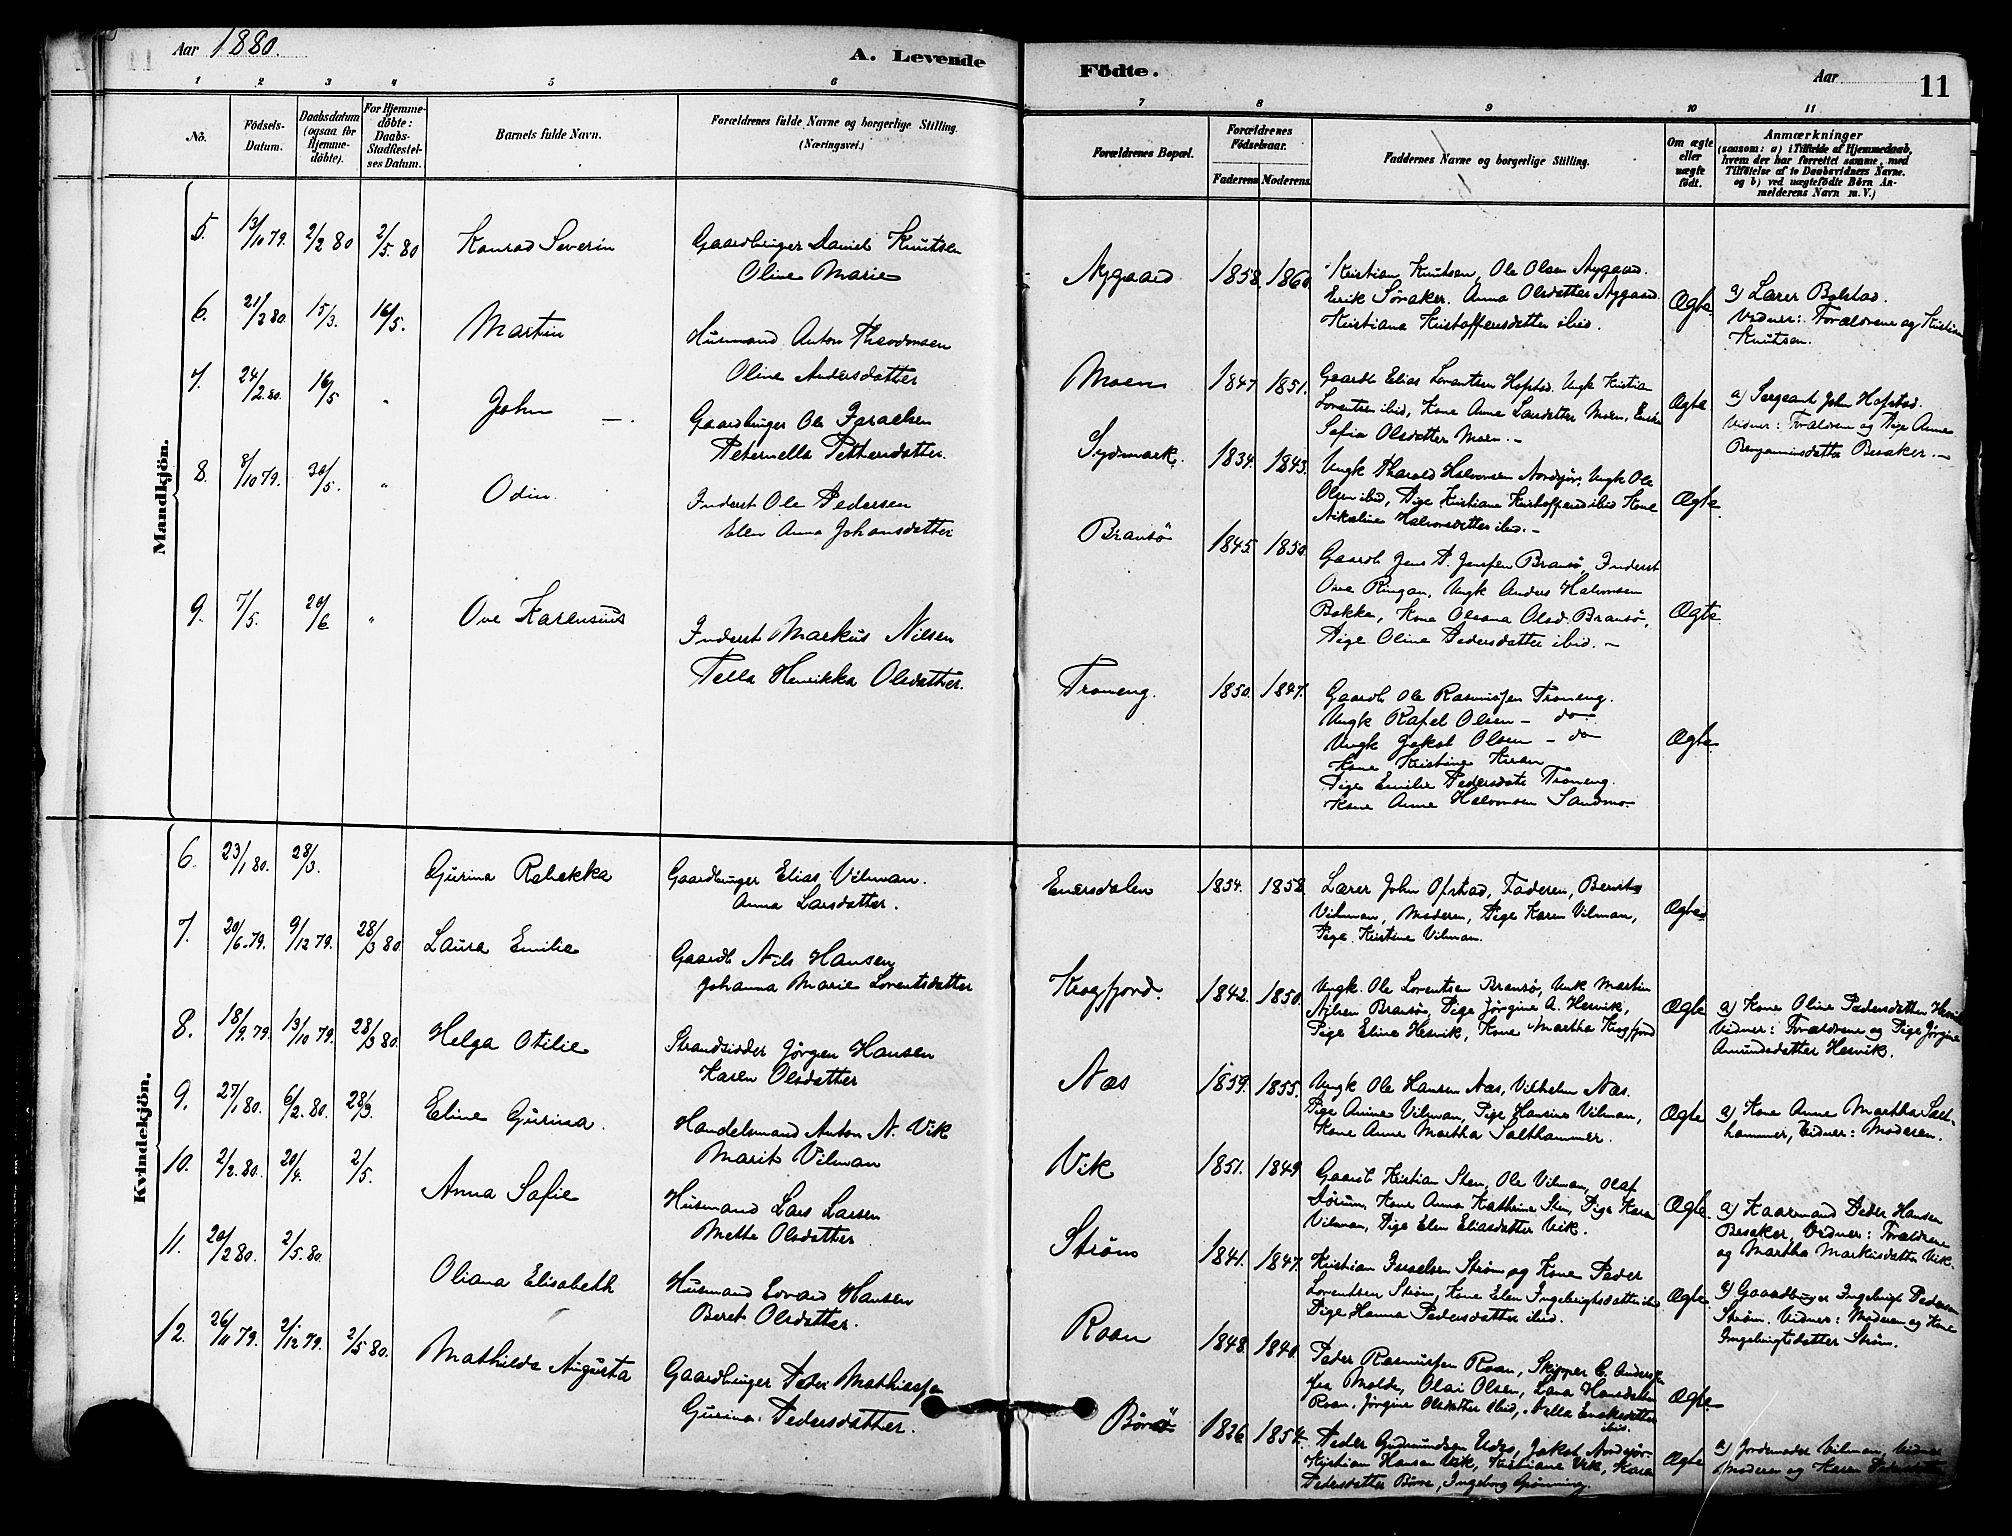 Aar 1880.
A. Levende
Födte.
Aar
11
1 2 3 4 5 6 7 8 9 10 11
No.
Födsels-Datum.
Daabsdatum (ogsaa for Hjemmedöbte).
For Hjemmedöbte: Daabs-Stadfestelses Datum.
Barnets fulde Navn.
Forældrenes fulde Navne og borgerlige Stilling. (Næringsvei.)
Forældrenes Bopæl.
Forældrenes Födselsaar.
Faderens Moderens.
Faddernes Navne og borgerlige Stilling.
Om ægte eller uægte födt.
Anmærkninger
(saasom: a) i Tilfælde af Hjemmedaab,
hvem der har forrettet samme, med
Tilföielse af to Daabsvidners Navne.
og b) ved uægtefödte Börn An-
melderens Navn m. V.)
Mandkjön.
5. 13/10 79. 2/2 80 2/5. 80 Konrad Severin
Gaardbruger Daniel Knutsen
Oline Marie
Nygaard 1858. 1860.
Kristian Knutsen, Ole Olsen Nygaard.
Erik Søraker. Anna Olsdatter Nygaard.
Kristiana Kristoffersdatter ibid.
Ægte
a) Lærer Bolstad.
Vidner: Forældrene og Kristian
Knutsen.
6. 21/2 80. 15/3. 16/5. Martin
Husmand Anton Theodorsen
Oline Andersdatter
Moen 1847. 1851.
Gaardb Elias Lorentsen Hofstad. Ungk Kristian
Lorentsen ibid, Kone Anne Larsdatter Moen, Enke
Sofia Olsdatter Moen.-
Ægte
a) Sergeant John Hofstad.
Vidner: Forældrene og Pige Anne
Benjaminsdatter Besaker.-
7. 24/2. 80. 16/5 " John -
Gaardbruger Ole Israelsen
Peternella Pettersdatter.
Sydmark. 1834. 1843.
Ungk Tharald Halvorsen Nordsjør, Ungk Ole
Olsen ibid, Pige Kristiane Kristoffersd ibid Kone
Nikoline Halvorsdatter ibid.-
Ægte
8. 8/10 79. 30/5. " Odin
Inderst Ole Pedersen
Elen Anna Johansdatter
Bransø 1845. 1850.
Gaardb Jens P. Jensen Bransø, Inderst
Ove Ringan, Ungk Anders Halvorsen
Bakka, Kone Olsana Olsd. Bransø,
Pige Oline Pedersdatter ibid.-
Ægte
9. 7/5. 20/6 " Ove Karensius
Inderst Markus Nilsen
Pella Henrikka Olsdatter.
Troneng. 1850. 1847.
Gaardb Ole Rasmussen Troneng.
Ungk Rafel Olsen - do
Ungk Jakob Olsen - do
Kone Kristine Kiran
Pige Emilie Pedersdatter Troneng.
Kone Anne Halvorsen Sandmo.
Ægte
Kvindekjön.
6. 23/1 80. 28/3. Gurina Rebekka
Gaardbruger Elias Vilman.
Anna Larsdatter.
Einersdalen 1854. 1858.
Lærer John Ofstad, Faderen, Berit
Vilman, Moderen, Pige Karen Vilman,
Pige Kristine Vilman.
Ægte
7. 20/6. 79. 9/12 79. 28/3 80 Laura Emilie
Gaardb Nils Hansen
Johanna Marie Lorentsdatter
Krogfjord. 1842. 1850.
Ungk. Ole Lorentsen Bransø, Unk Martin
Nilsen Bransø, Pige Jørgine A. Hervik,
Pige Eline Hesvik, Kone Martha Krogfjord
Ægte
a) Kone Oline Pedersdatter Hesvik
Vidner: Forældrene og Pige Jørgine
Amundsdatter Hesvik.
8. 18/9. 79. 13/10 79. 28/3 80. Helga Otilie
Strandsidder Jørgen Hansen
Karen Olsdatter
Næs 1859. 1855.
Ungk Ole Hansen Næs, Vilhelm Næs.
Pige Anne Vilman, Pige Hansine Vilman,
Kone Anne Martha Salthammer.
Ægte
a) Kone Anne Martha Salt-
hammer, Vidner: Moderen.
9. 27/1 80. 6/2. 80. 28/3. Eline Gurina.
Handelsmand Anton N. Vik
Marit Vilman
Vik 1851. 1849
Gaardb Kristian Sten, Ole Vilman, Olaf
Størum, Kone Anna Kathrine Sten, Pige Karen
Vilman, Pige Elen Eliasdatter Vik.
Ægte.
a) Kaarmand Peder Hansen
Besaker, Vidner: Forældrene
og Martha Markusdatter Vik.
10. 2/2. 80. 20/4. 2/5. Anna Sofie
Husmand Lars Larsen
Mette Olsdatter
Strøm 1841. 1847.
Kristian Israelsen Strøm og Kone Peder
Lorentsen Strøm, Kone Elen Ingebrigtsdatter ibid
Pige Hanna Pedersdatter ibid.
Ægte
a) Gaardbruger Ingebrigt Pedersen
Strøm. Vidner: Moderen og Kone
Ingebrigtsdatter Strøm.
11. 20/2 80. 2/5. 80. Oliana Elisabeth
Husmand Edvard Hansen
Beret Olsdatter.
Roan 1848. 1840.
Peder Rasmussen Roan, Skipper C. Andersen
fra Molde, Olai Olsen, Lana Hansdatter
Roan, Jørgine Olsdatter ibid, Pella Enoksdatter
ibid.
Ægte
12. 26/11 79. 2/12 79. 2/5 80. Mathilde Augusta
Gaardbruger Peder Mathiassen
Gurina Pedersdatter.
Börö 1826. 1854.
Peder Gudmundsen Udro, Jakob Nordsjør
Kristian Hansen Vik, Kristiane Vik, Karen
Pedersdatter Børø, Ingeborg Grønning.
Ægte
a) Jordemoder Vilman, Vidner
Moderen og Karen Pedersdatter